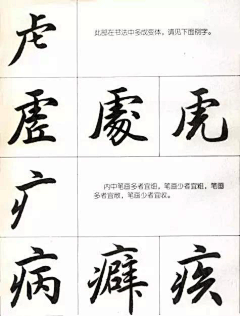 虍
此部在书法中多改变体，请见下面别字。
虚 處 虎
疒
内中笔画多者宜粗，笔画少者宜粗，笔画
多者宜敞，笔画少者宜收。
病 癖 疾